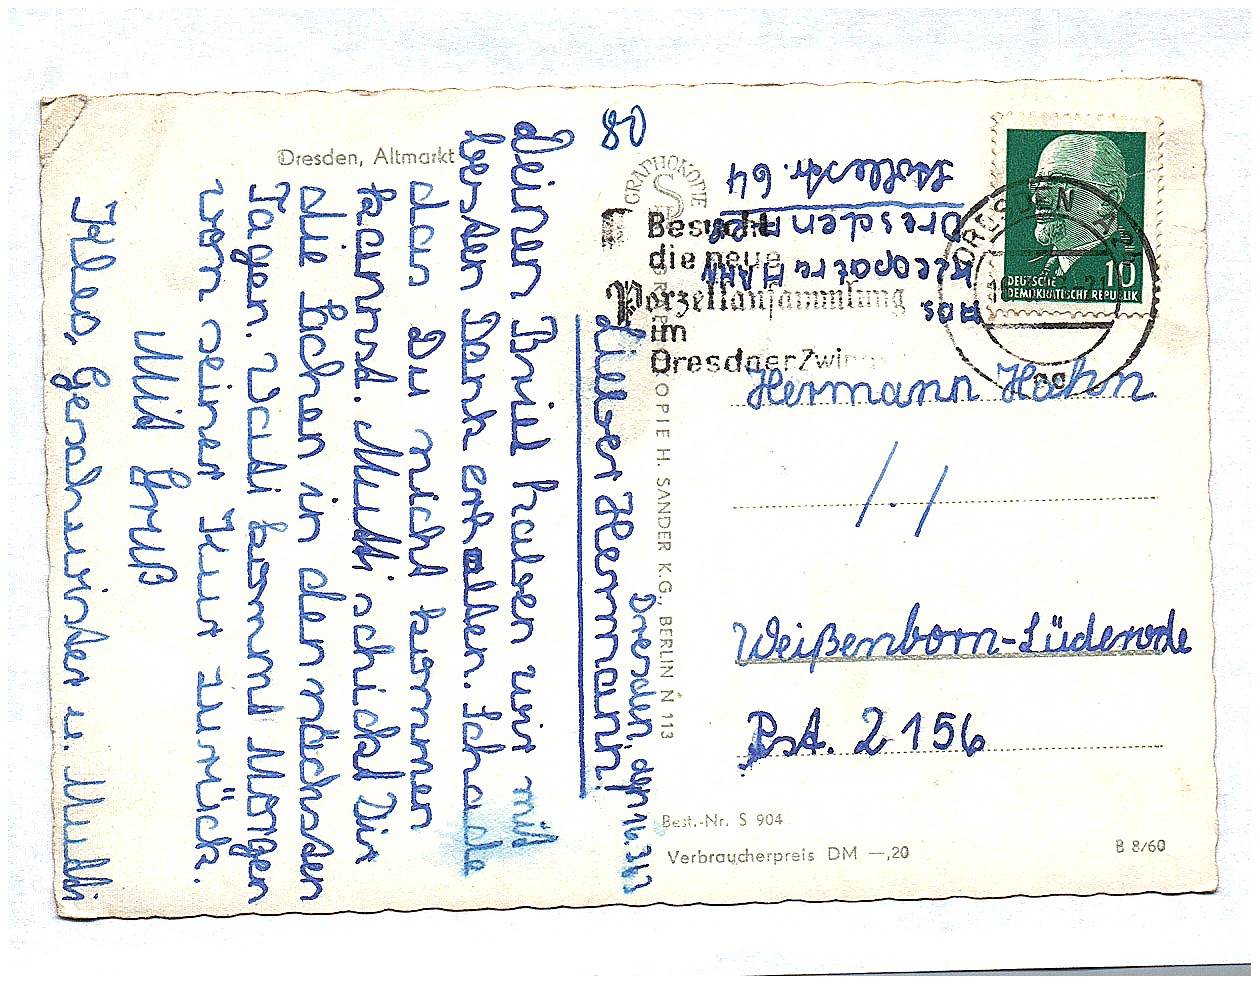 Dresden, Altmarkt
80
Dresden, den 16.3.63
Lieber Hermann!
Deinen Brief haben wir mit
besten Dank erhalten. Schade
das Du nicht kommen
kannst. Mutti schickt Dir
die Sachen in den nächsten
Tagen. Vati kommt Morgen
von seiner Kur zurück.
Mit Gruß
Alles, Geschwister u. Mutti
GRAPHOKOPIE
GRAPHOKOPIE H. SANDER K.G., BERLIN N 113
Besucht
die neue
Porzellansammlung
im
Dresdner Zwinger
DRESDEN
DEUTSCHE
DEMOKRATISCHE REPUBLIK
10
Abs
Dresden A
Hermann Hahn
Weißenborn-Lüderode
PsA. 2156
Best.-Nr. S 904
Verbraucherpreis DM —,20
B 8/60